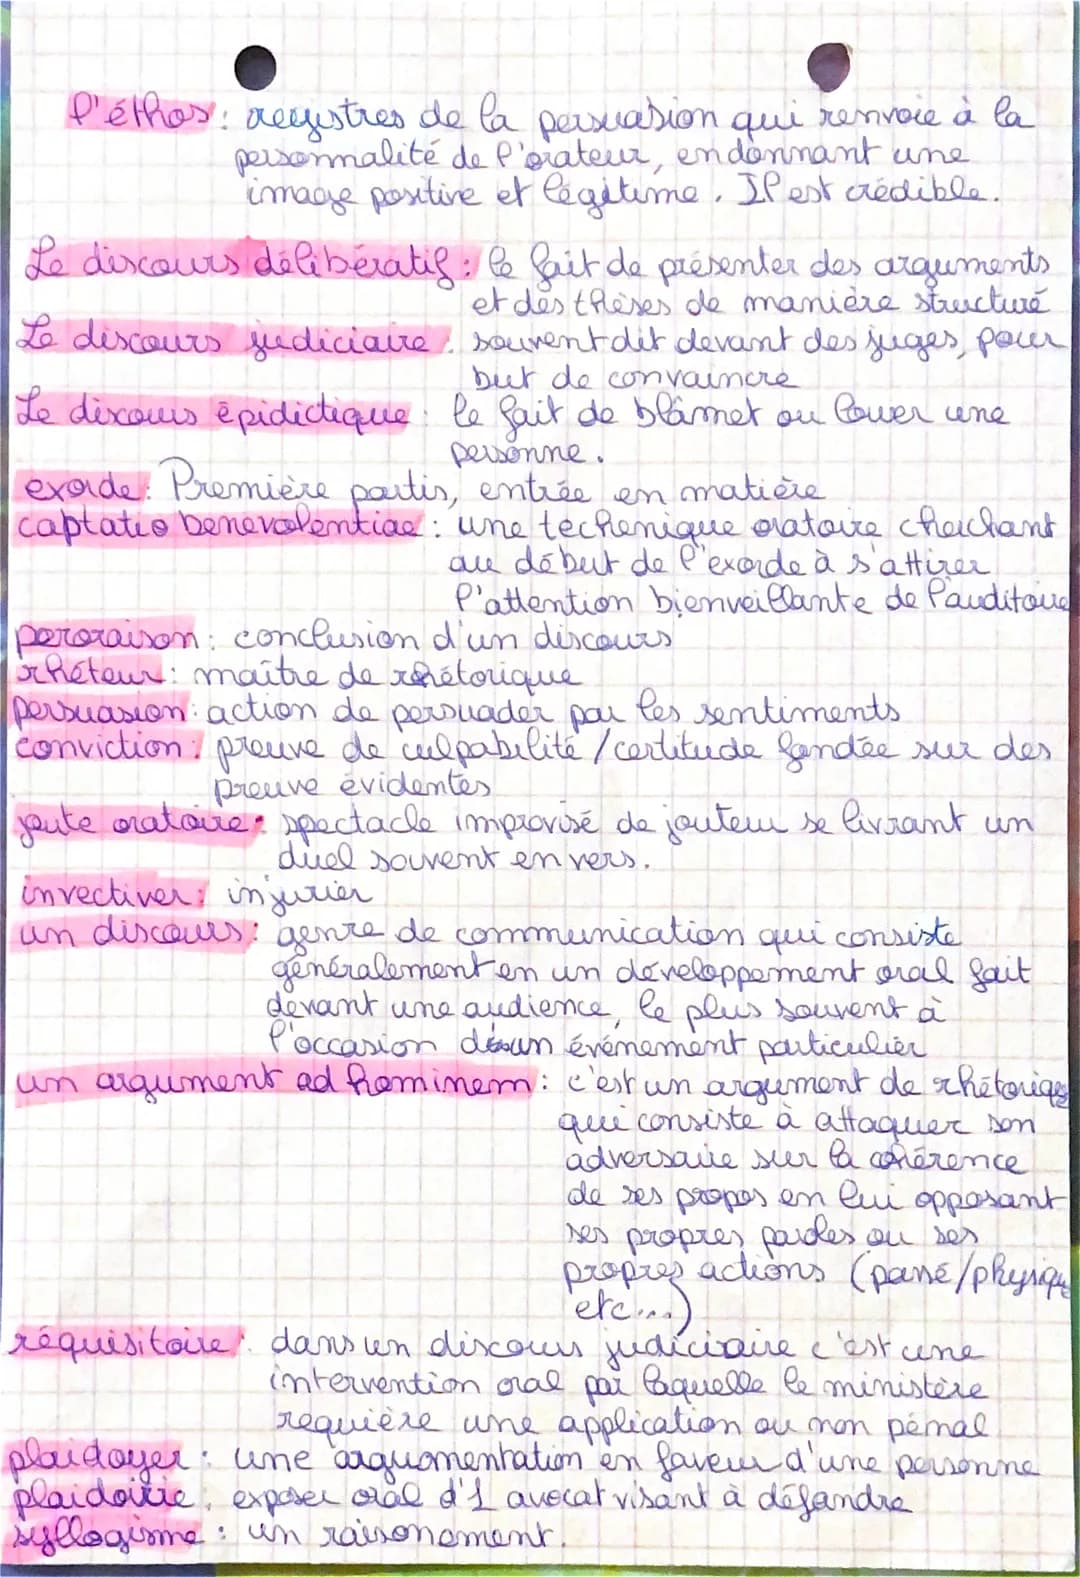 l'éthos : registres de la persuasion qui renvoie à la
personnalité de l'orateur, en donnant une
image positive et légitime. Il est crédible.
Le discours délibératif : le fait de présenter des arguments
et des thèses de manière structuré
Le discours judiciaire : souvent dit devant des juges, pour
but de convaincre
Le discours épidictique : le fait de blâmet ou louer une
personne.
exorde : Première partis, entrée en matière
captatio benevolentiae : une techenique oratoire cherchant
au début de l'exorde à s'attirer
l'attention bienveillante de l'auditoire
peroraison : conclusion d'un discours
rhéteur : maître de rhétorique
persuasion : action de persuader par les sentiments
conviction : preuve de culpabilité / certitude fondée sur des
preuve évidentes
joute oratoire : spectacle improvisé de jouteur se livrant un
duel souvent en vers.
invectiver : injurier
un discours : genre de communication qui consiste
généralement en un développement oral fait
devant une audience, le plus souvent à
l'occasion d'un événement particulier
un argument ad hominem : c'est un argument de rhétorique
qui consiste à attaquer son
adversaire sur la cohérence
de ses propos en lui opposant
ses propres paroles ou ses
propres actions (passé/physique
etc...)
réquisitoire : dans un discours judiciaire c'est une
intervention oral par laquelle le ministère
requière une application ou non pénal
plaidoyer : une arguomentation en faveur d'une personne
plaidoirie : exposer oral d'1 avocat visant à défandre
syllogisme : un raisonoment.